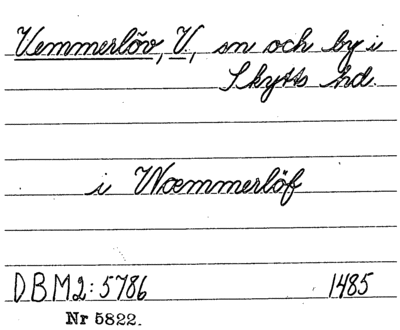 Vemmerlöv, V., sn och by i
Skytts hd.
i Wœmmerlöf
DBM2:5786 1485
Nr 5822.